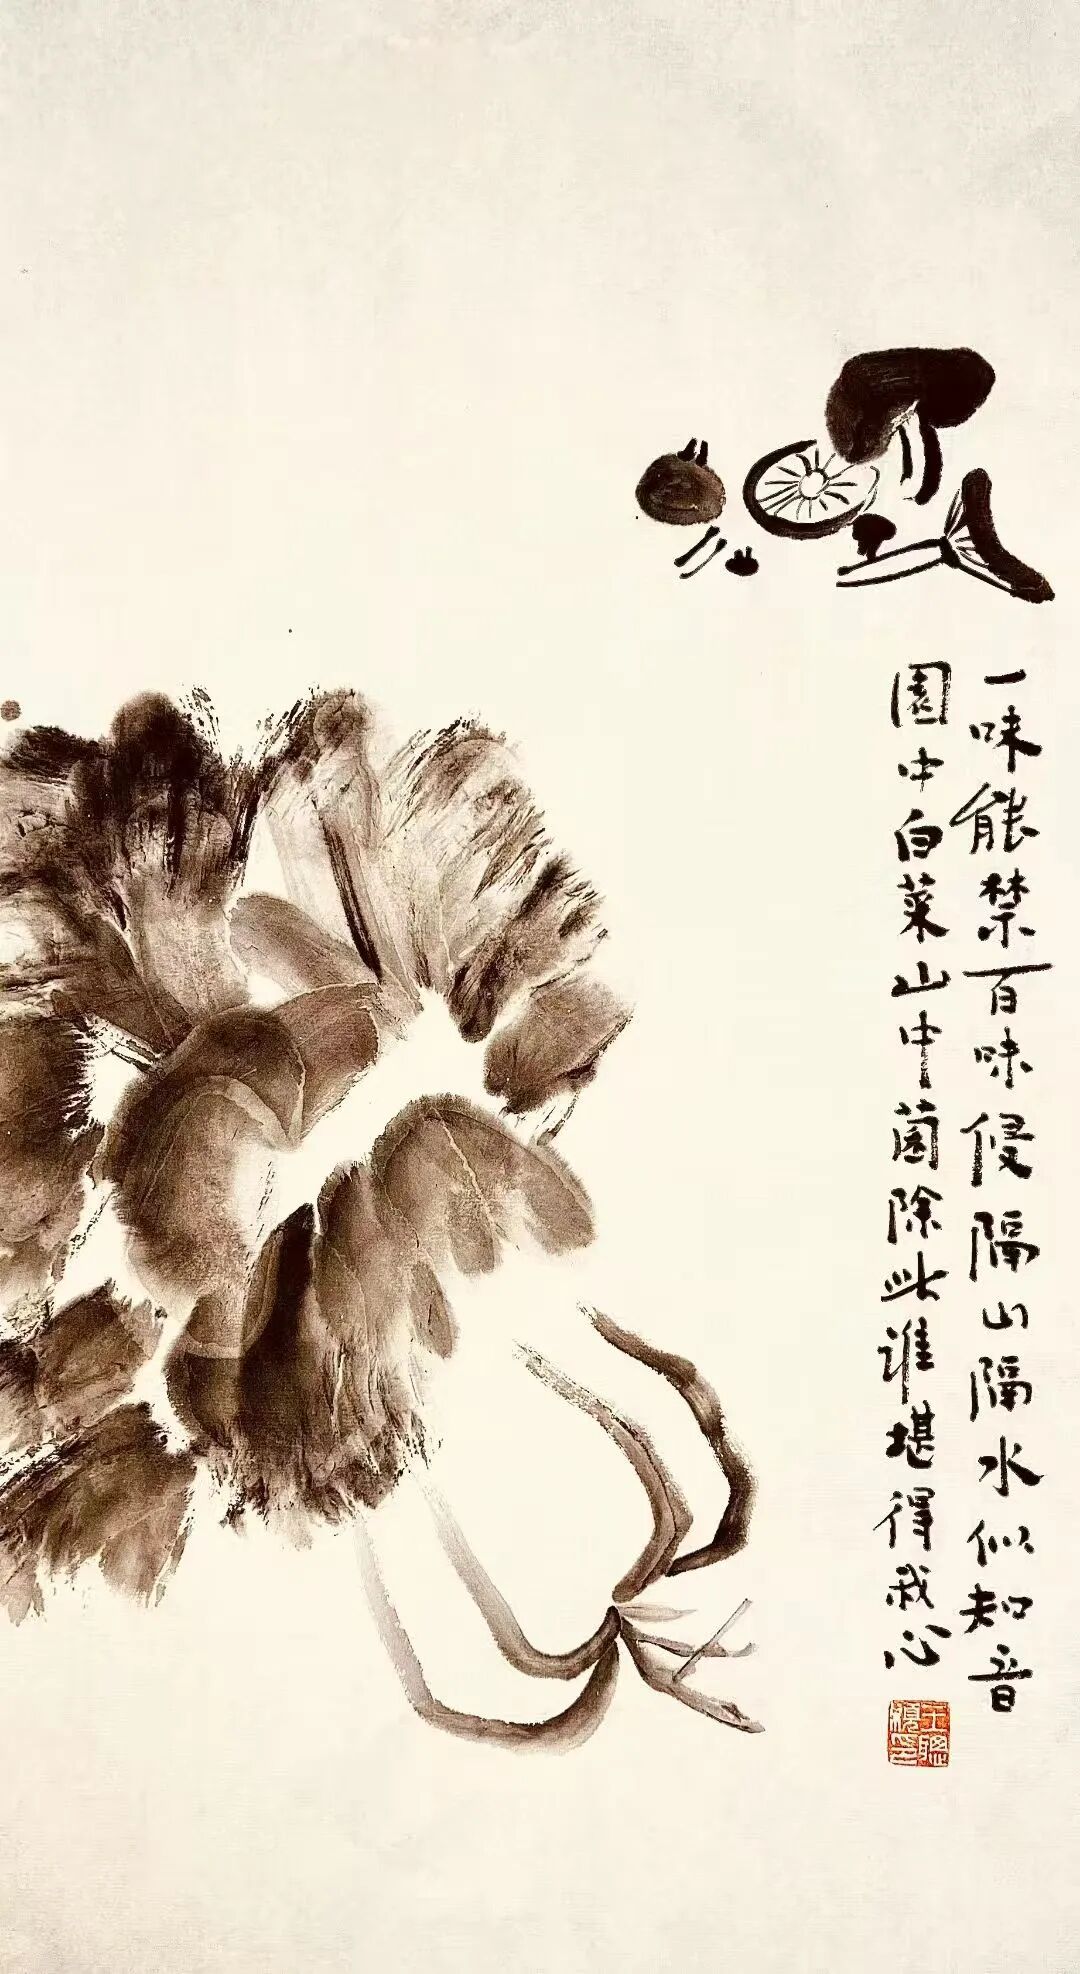 一味能禁百味侵隔山隔水似知音
園中白菜山中菌除此谁堪得我心